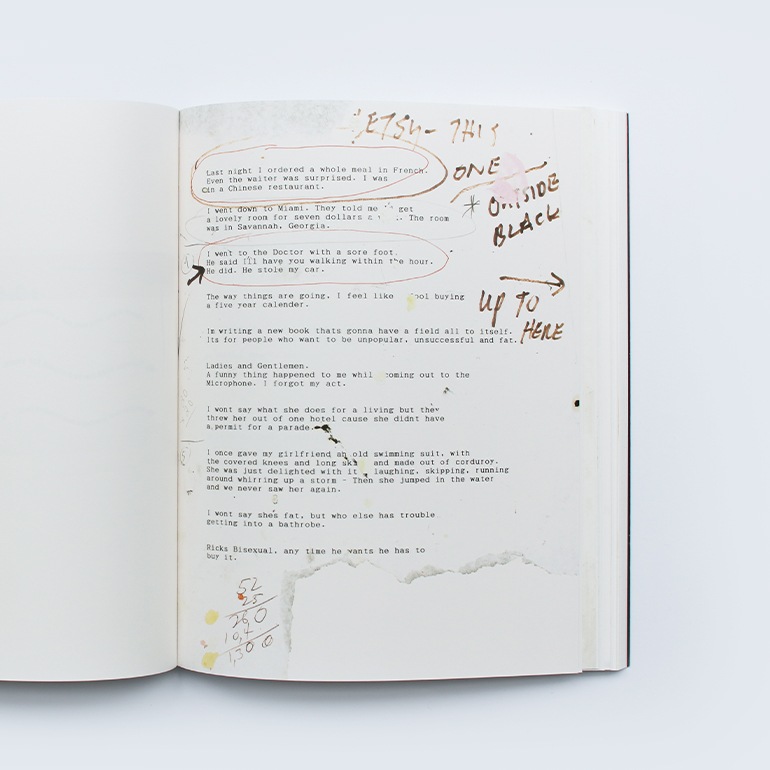 ETSY- THIS
ONE
OUTSIDE
BLACK
UP TO
HERE
Last night I ordered a whole meal in French.
Even the waiter was surprised. I was
in a Chinese restaurant.
I went down to Miami. They told me get
a lovely room for seven dollars a The room
was in Savannah, Georgia.
I went to the Doctor with a sore foot.
He said I'll have you walking within the hour.
He did. He stole my car.
The way things are going, I feel like buying
a five year calender.
Im writing a new book thats gonna have a field all to itself.
Its for people who want to be unpopular, unsuccessful and fat.
Ladies and Gentlemen.
A funny thing happened to me coming out to the
Microphone. I forgot my act.
I wont say what she does for a living but they
threw her out of one hotel cause she didnt have
a permit for a parade.
I once gave my girlfriend an old swimming suit, with
the covered knees and long and made out of corduroy.
She was just delighted with it laughing, skipping, running
around whirring up a storm - Then she jumped in the water
and we never saw her again.
I wont say shes fat, but who else has trouble
getting into a bathrobe.
Ricks Bisexual, any time he wants he has to
buy it.
52
25
260
10,4
1,300